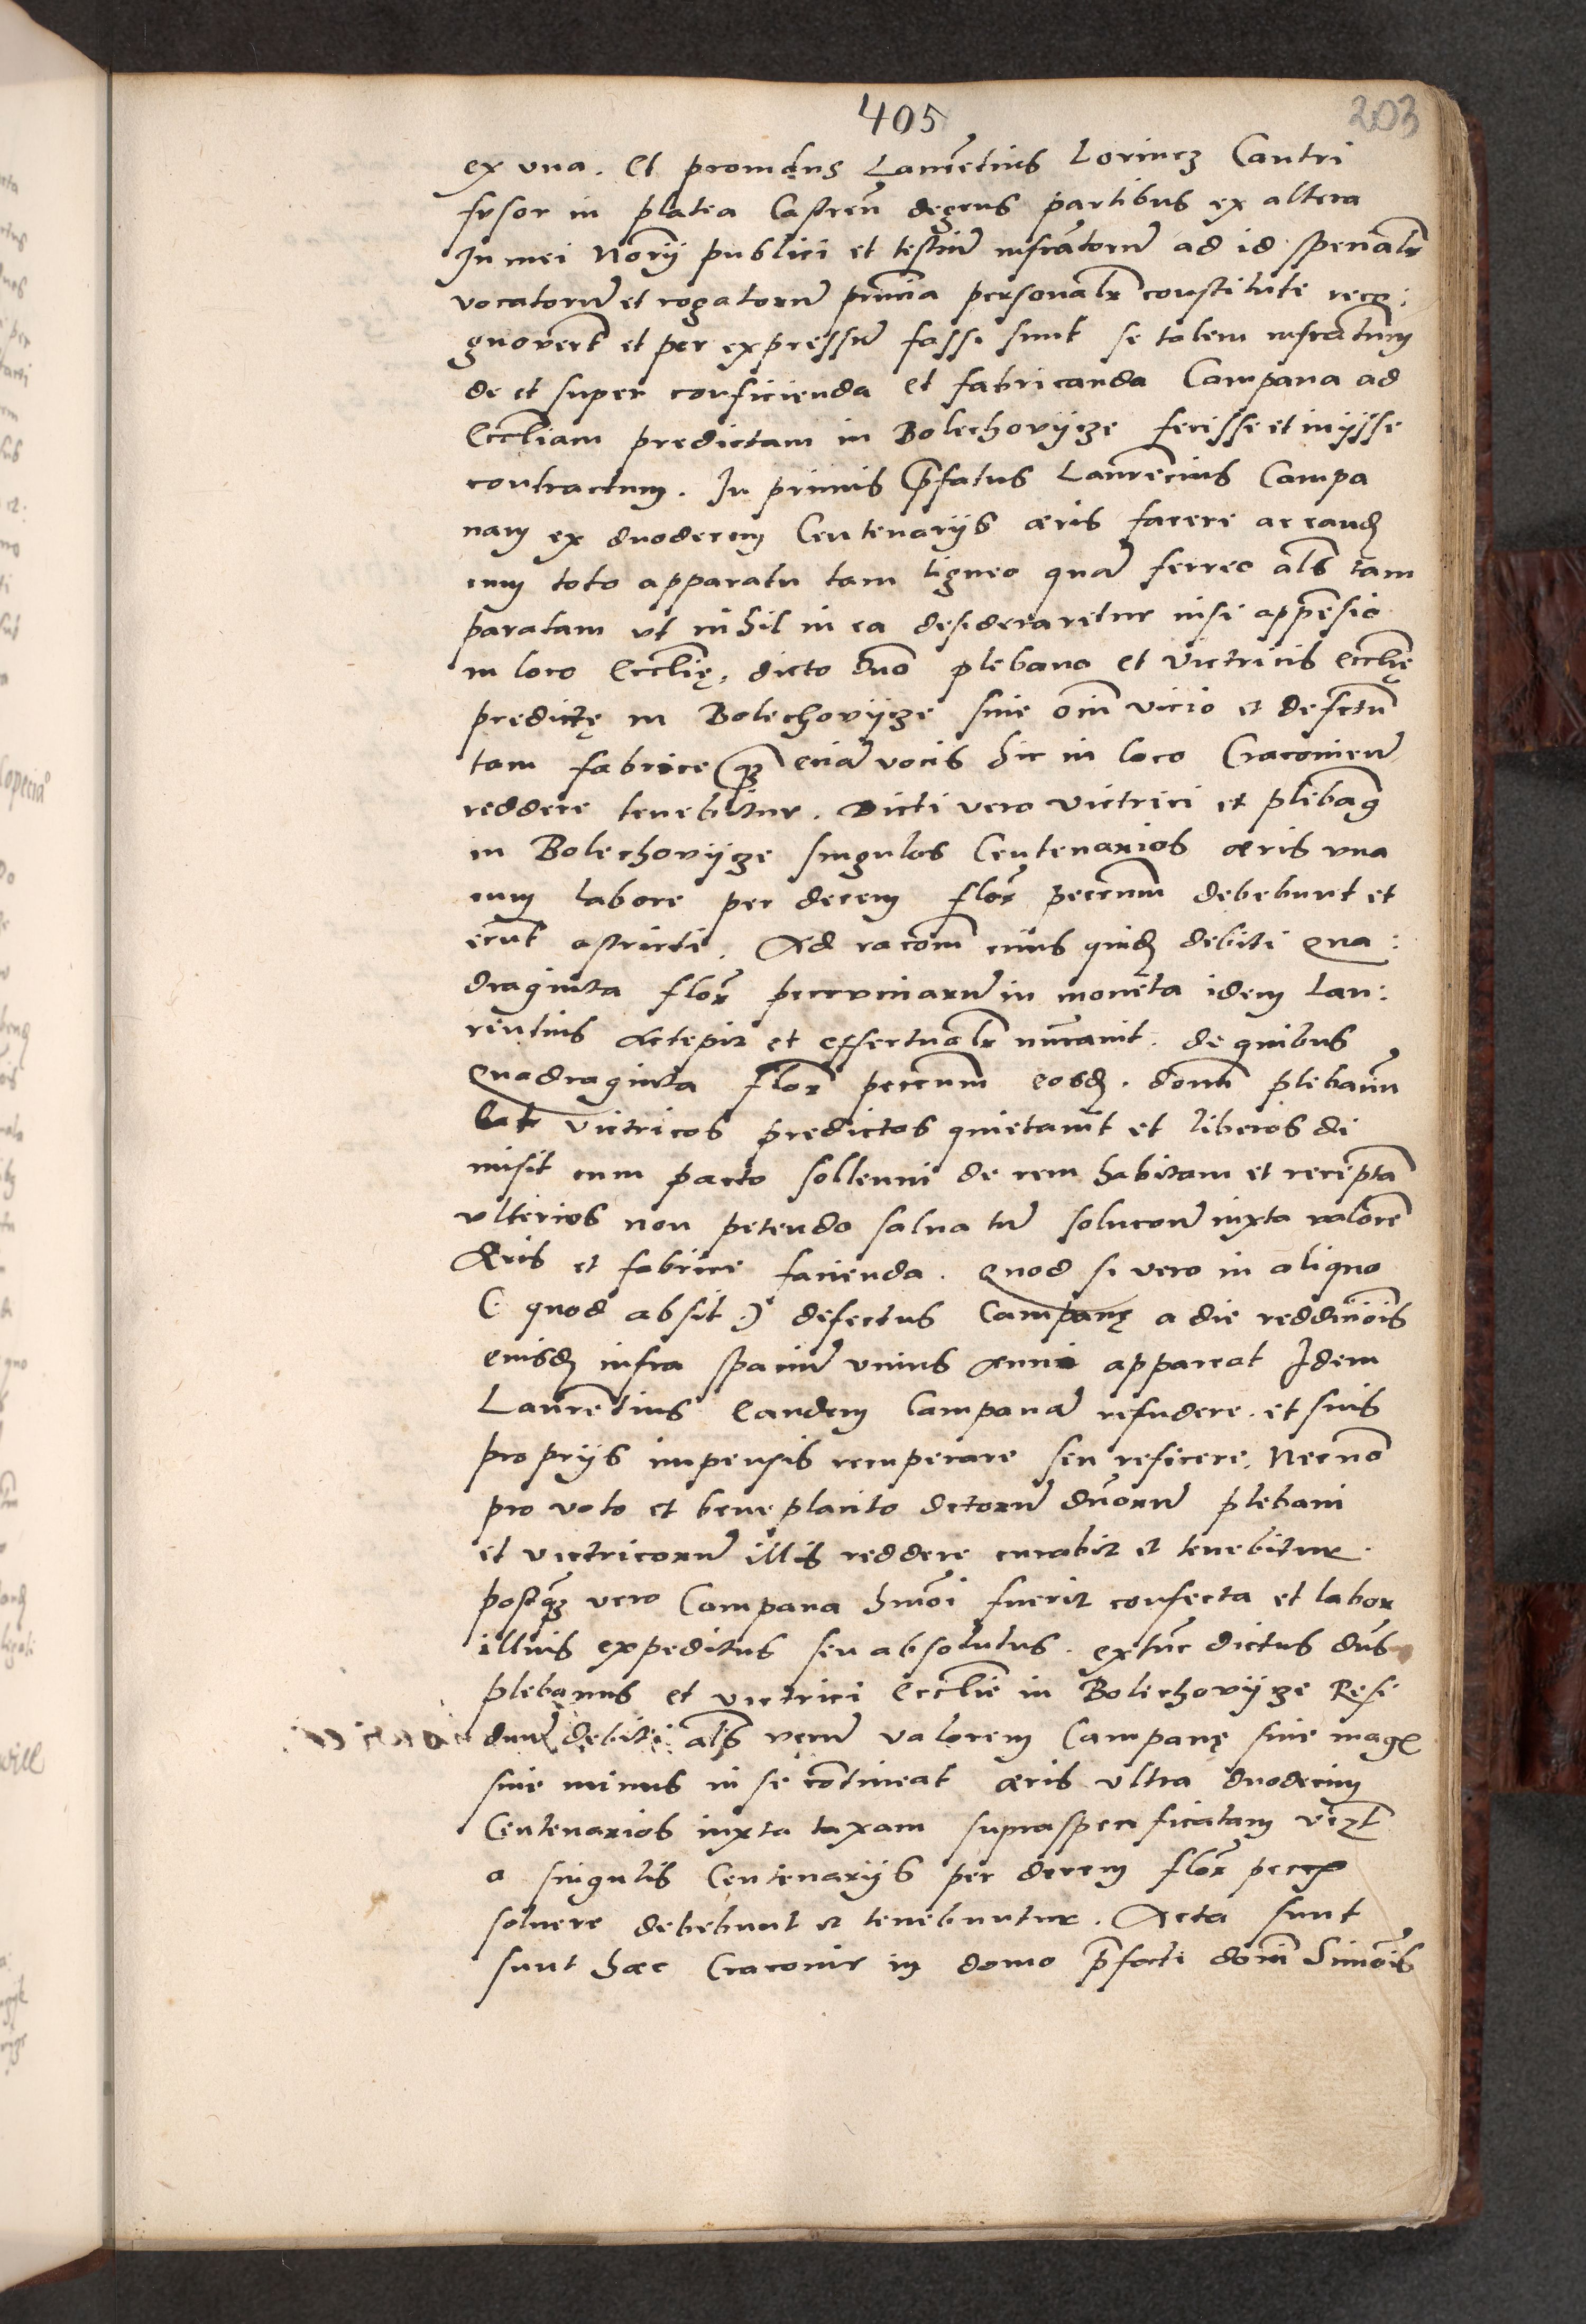 405
203
ex vna. Et prouidus Laurētius Lorincz Cantri
fusor in platea Castreñ degens partibus ex altera
In mei Norij publici et testiū infrāptorū ad id spenalr
vocatorū et rogatorū pnīcia personalr constitute reco:
gnouerūt et per expressū fassi sunt se talem infractum
de et super conficienda et fabricanda Campana ad
Eccliam predictam in Bolechovijcze fecisse et inijsse
contractum. In primis p̄fatus Laurēcius Campa
nam ex duodecem Centenarijs aeris facere ac eand
cum toto apparatu tam ligneo quā ferreo als tam
paratam vt nihil in ea desideraretur nisi appēsio
in loco Ecclię, dicto dno plebano et victricis Ecclię
predictę in Bolechovijcze sine omī vicio et defectu
tam fabrice q̄ eciā vocis hic in loco Cracouien̄
reddere tenebitur. Dicti vero victrici et plebang
in Bolechovijcze singulos Centenarios aeris vna
cum labore per decem flor peccunī debebunt et
erūt astricti. Ad racoīm cuius quid debiti qua:
draginta flor peccuniarū in moneta idem Lau:
rentius Accepit et effectualr nūcauit. de quibus
Quadraginta flor peccunī eosd. donū plebanū
ac victricos predictos quietauit et liberos di
misit cum pacto sollenni de rem habitam et receptā
vlterios non petendo salua tn̄ solucone iuxta valorē
Aeris et fabrice facienda. Quod si vero in aliquo
(: quod absit :) defectus Campanę a die reddicionis
eiusd infra spaciū vnius anni appareat Idem
Laurētius Eandem Campanā refudere. et suis
proprijs impensis recuperare seu reficere. Necnō
pro voto et beneplacito dctorū dn̄orū plebani
et victricorū illis reddere curabit et tenebitur.
postq̄ vero Campana hmōi fuerit confecta et labor
illius expeditus seu absolutus. extūc dictus dns
plebanus et victrici Ecclie in Bolechovijcze Resi
duū debiti als verū valorem Campanę siue mag
siue minus in se cōtineat aeris vltra duodecim
Centenarios iuxta taxam supraspecificatam vīzt
a singulis Centenarijs per decem flor pecc
soluere debebunt et tenebuntur. Acta sunt
sunt haec Cracouie in domo p̄facti domī Simōis